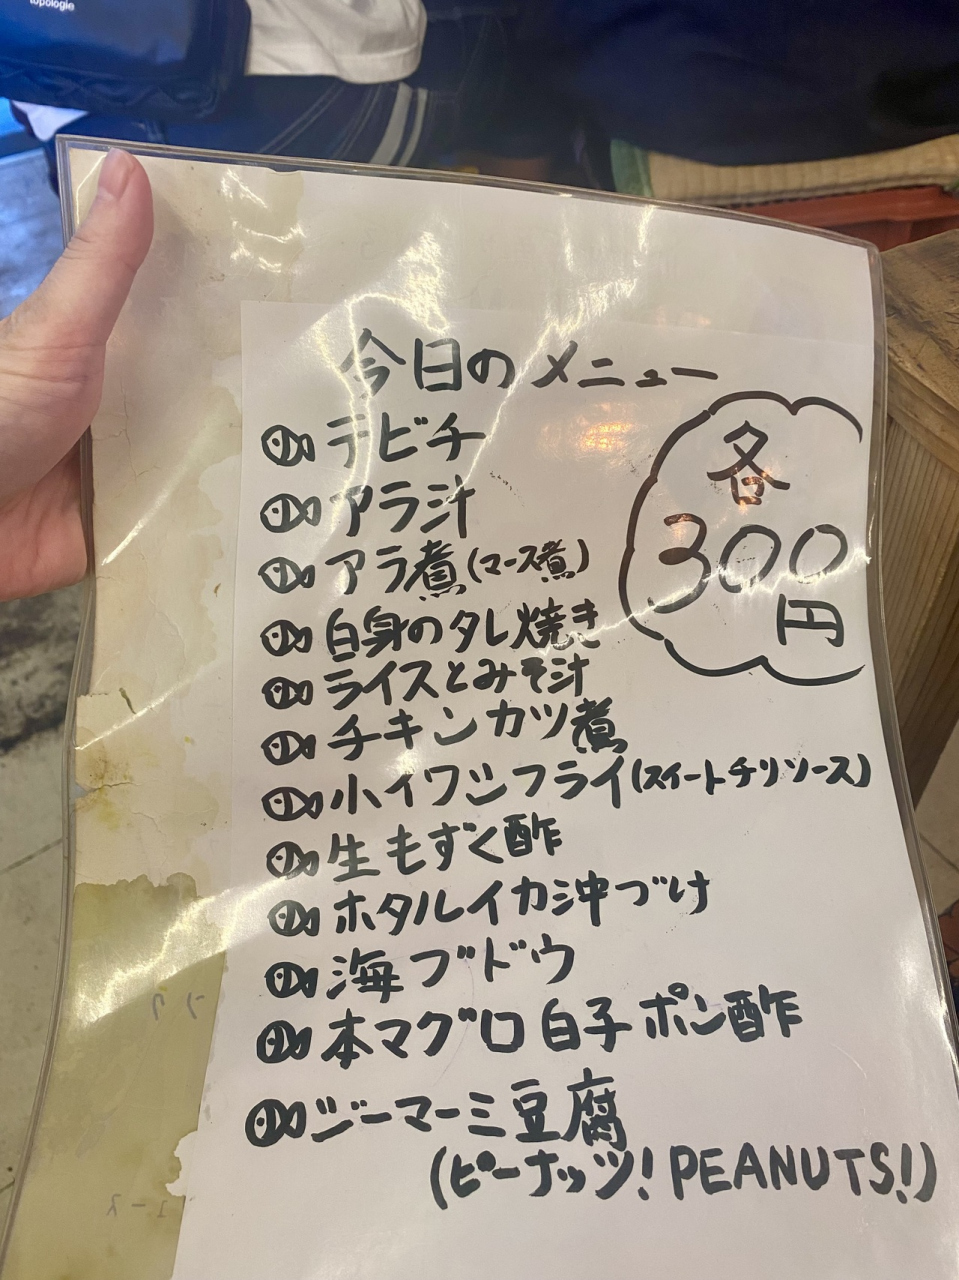 topologie
今日のメニュー
テビチ
アラ汁
アラ煮(マース煮)
白身のタレ焼き
ライスとみそ汁
チキンカツ煮
小イワシフライ(スイートチリソース)
生もずく酢
ホタルイカ沖づけ
海ブドウ
本マグロ白子ポン酢
ジーマーミ豆腐
(ピーナッツ! PEANUTS!)
各
300
円